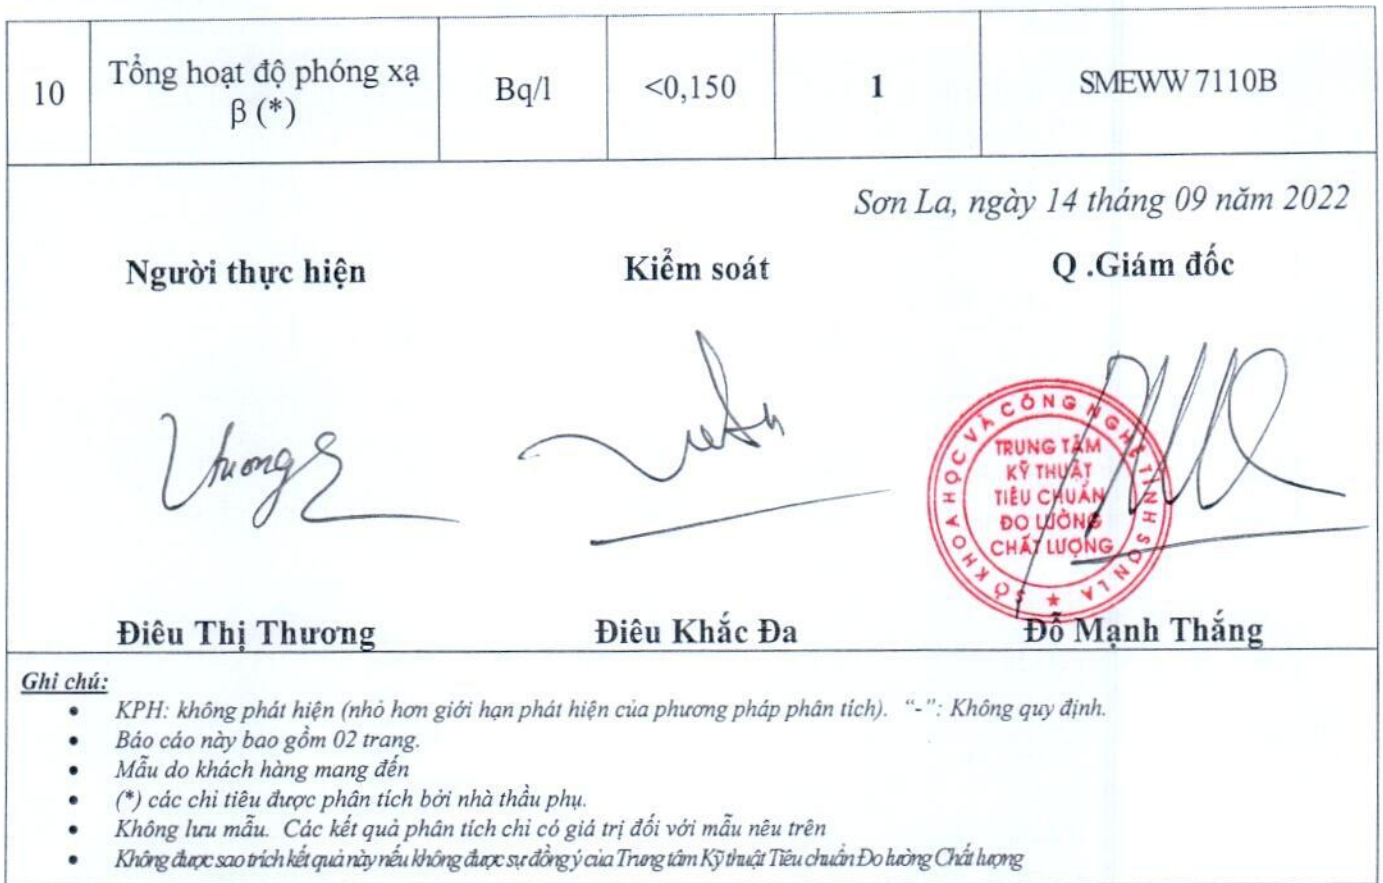 10 Tổng hoạt độ phóng xạ β (*) Bq/l <0,150 1 SMEWW 7110B
Sơn La, ngày 14 tháng 09 năm 2022
Người thực hiện Kiểm soát Q .Giám đốc
Thương
SỞ KHOA HỌC VÀ CÔNG NGHỆ TỈNH SƠN LA
TRUNG TÂM
KỸ THUẬT
TIÊU CHUẨN
ĐO LƯỜNG
CHẤT LƯỢNG
Điêu Thị Thương Điêu Khắc Đa Đỗ Mạnh Thắng
Ghi chú:
• KPH: không phát hiện (nhỏ hơn giới hạn phát hiện của phương pháp phân tích). “-”: Không quy định.
• Báo cáo này bao gồm 02 trang.
• Mẫu do khách hàng mang đến
• (*) các chỉ tiêu được phân tích bởi nhà thầu phụ.
• Không lưu mẫu. Các kết quả phân tích chỉ có giá trị đối với mẫu nêu trên
• Không được sao trích kết quả này nếu không được sự đồng ý của Trung tâm Kỹ thuật Tiêu chuẩn Đo lường Chất lượng